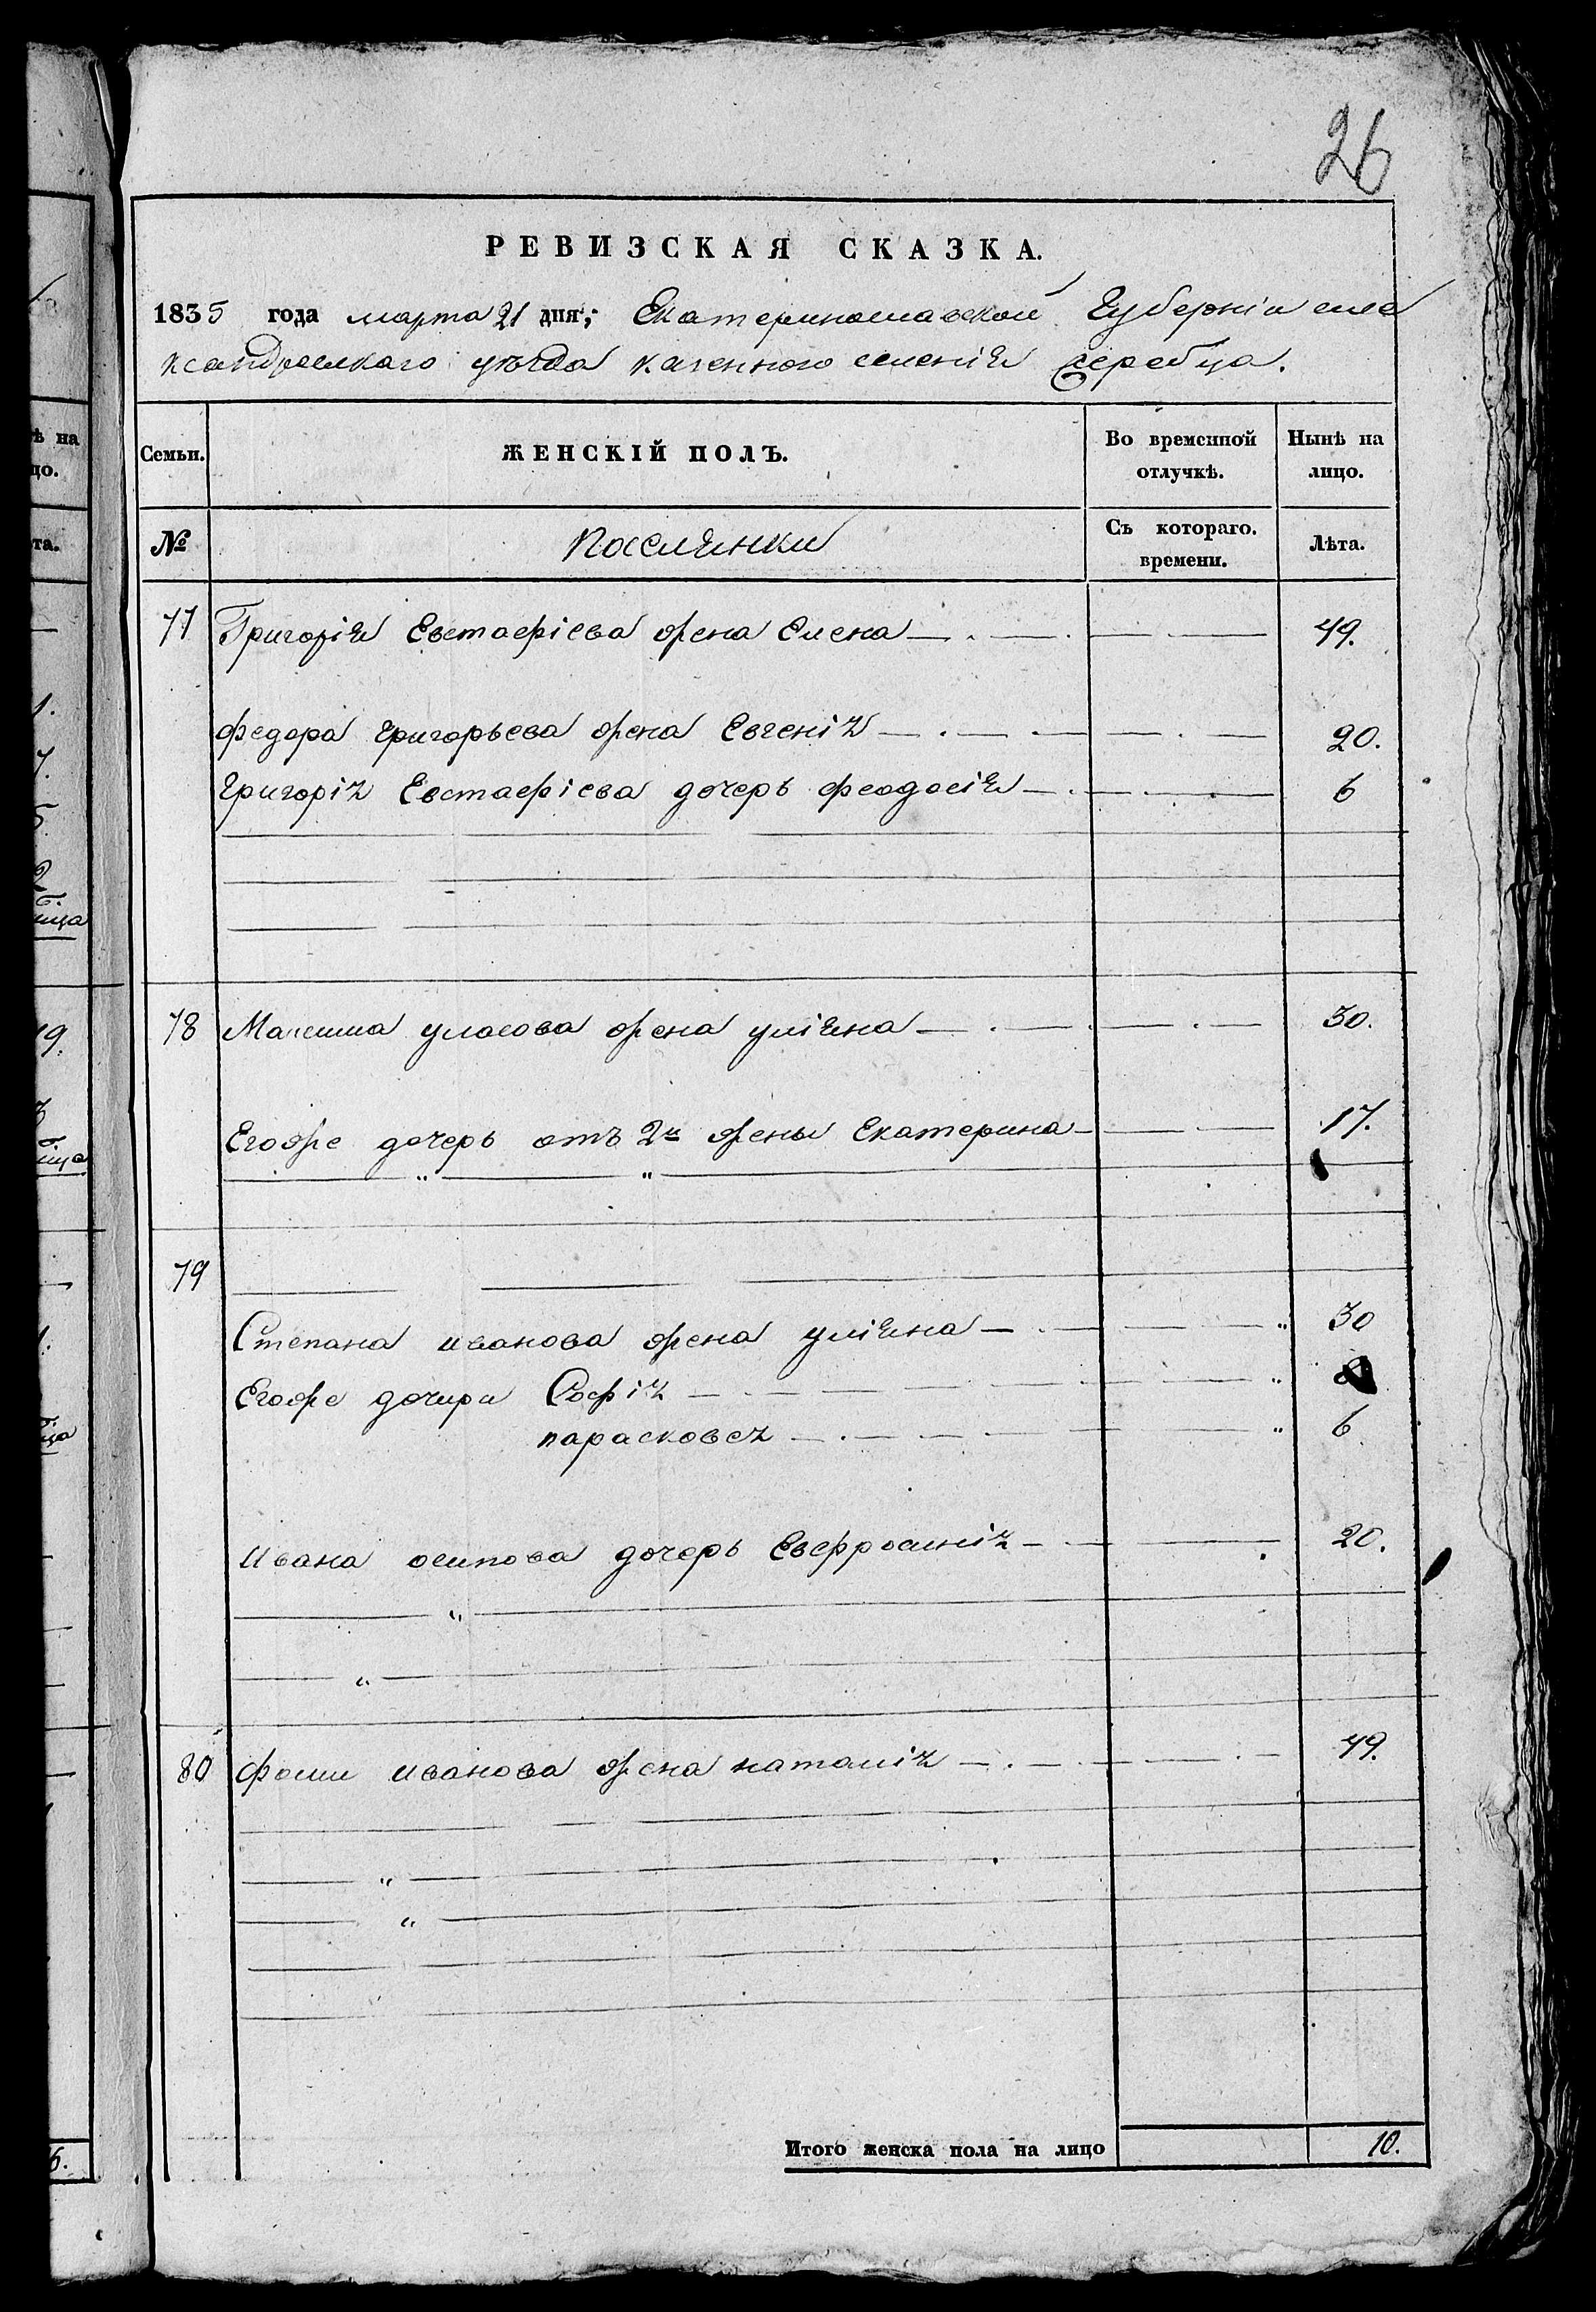 26
РЕВИЗСКАЯ СКАЗКА.
1835 года марта 21 дня; Екатеринославской Губерніи алѣ
ксандровскаго уѣзда казенного селенія жеребца.
Семьи.
ЖЕНСКІЙ ПОЛЪ.
Во временной отлучкѣ.
Нынѣ на лицо.
№
поселянки
Съ котораго. времени.
Лѣта.
77 Григорія Евстафіева жена Елена 49.
федора григорьева жена Евгенія 20.
григорія Евстафіева дочерь феодосія 6
78 Максима уласова жена уліяна 30.
Егоже дочерь отъ 2й жены Екатерина 17.
79
Степана иванова жена уліяна 30
Егоже дочери Софія 8
парасковея 6
ивана осипова дочерь Евфросинія 20.
80 фомы иванова жена наталія 49.
Итого женска пола на лицо 10.